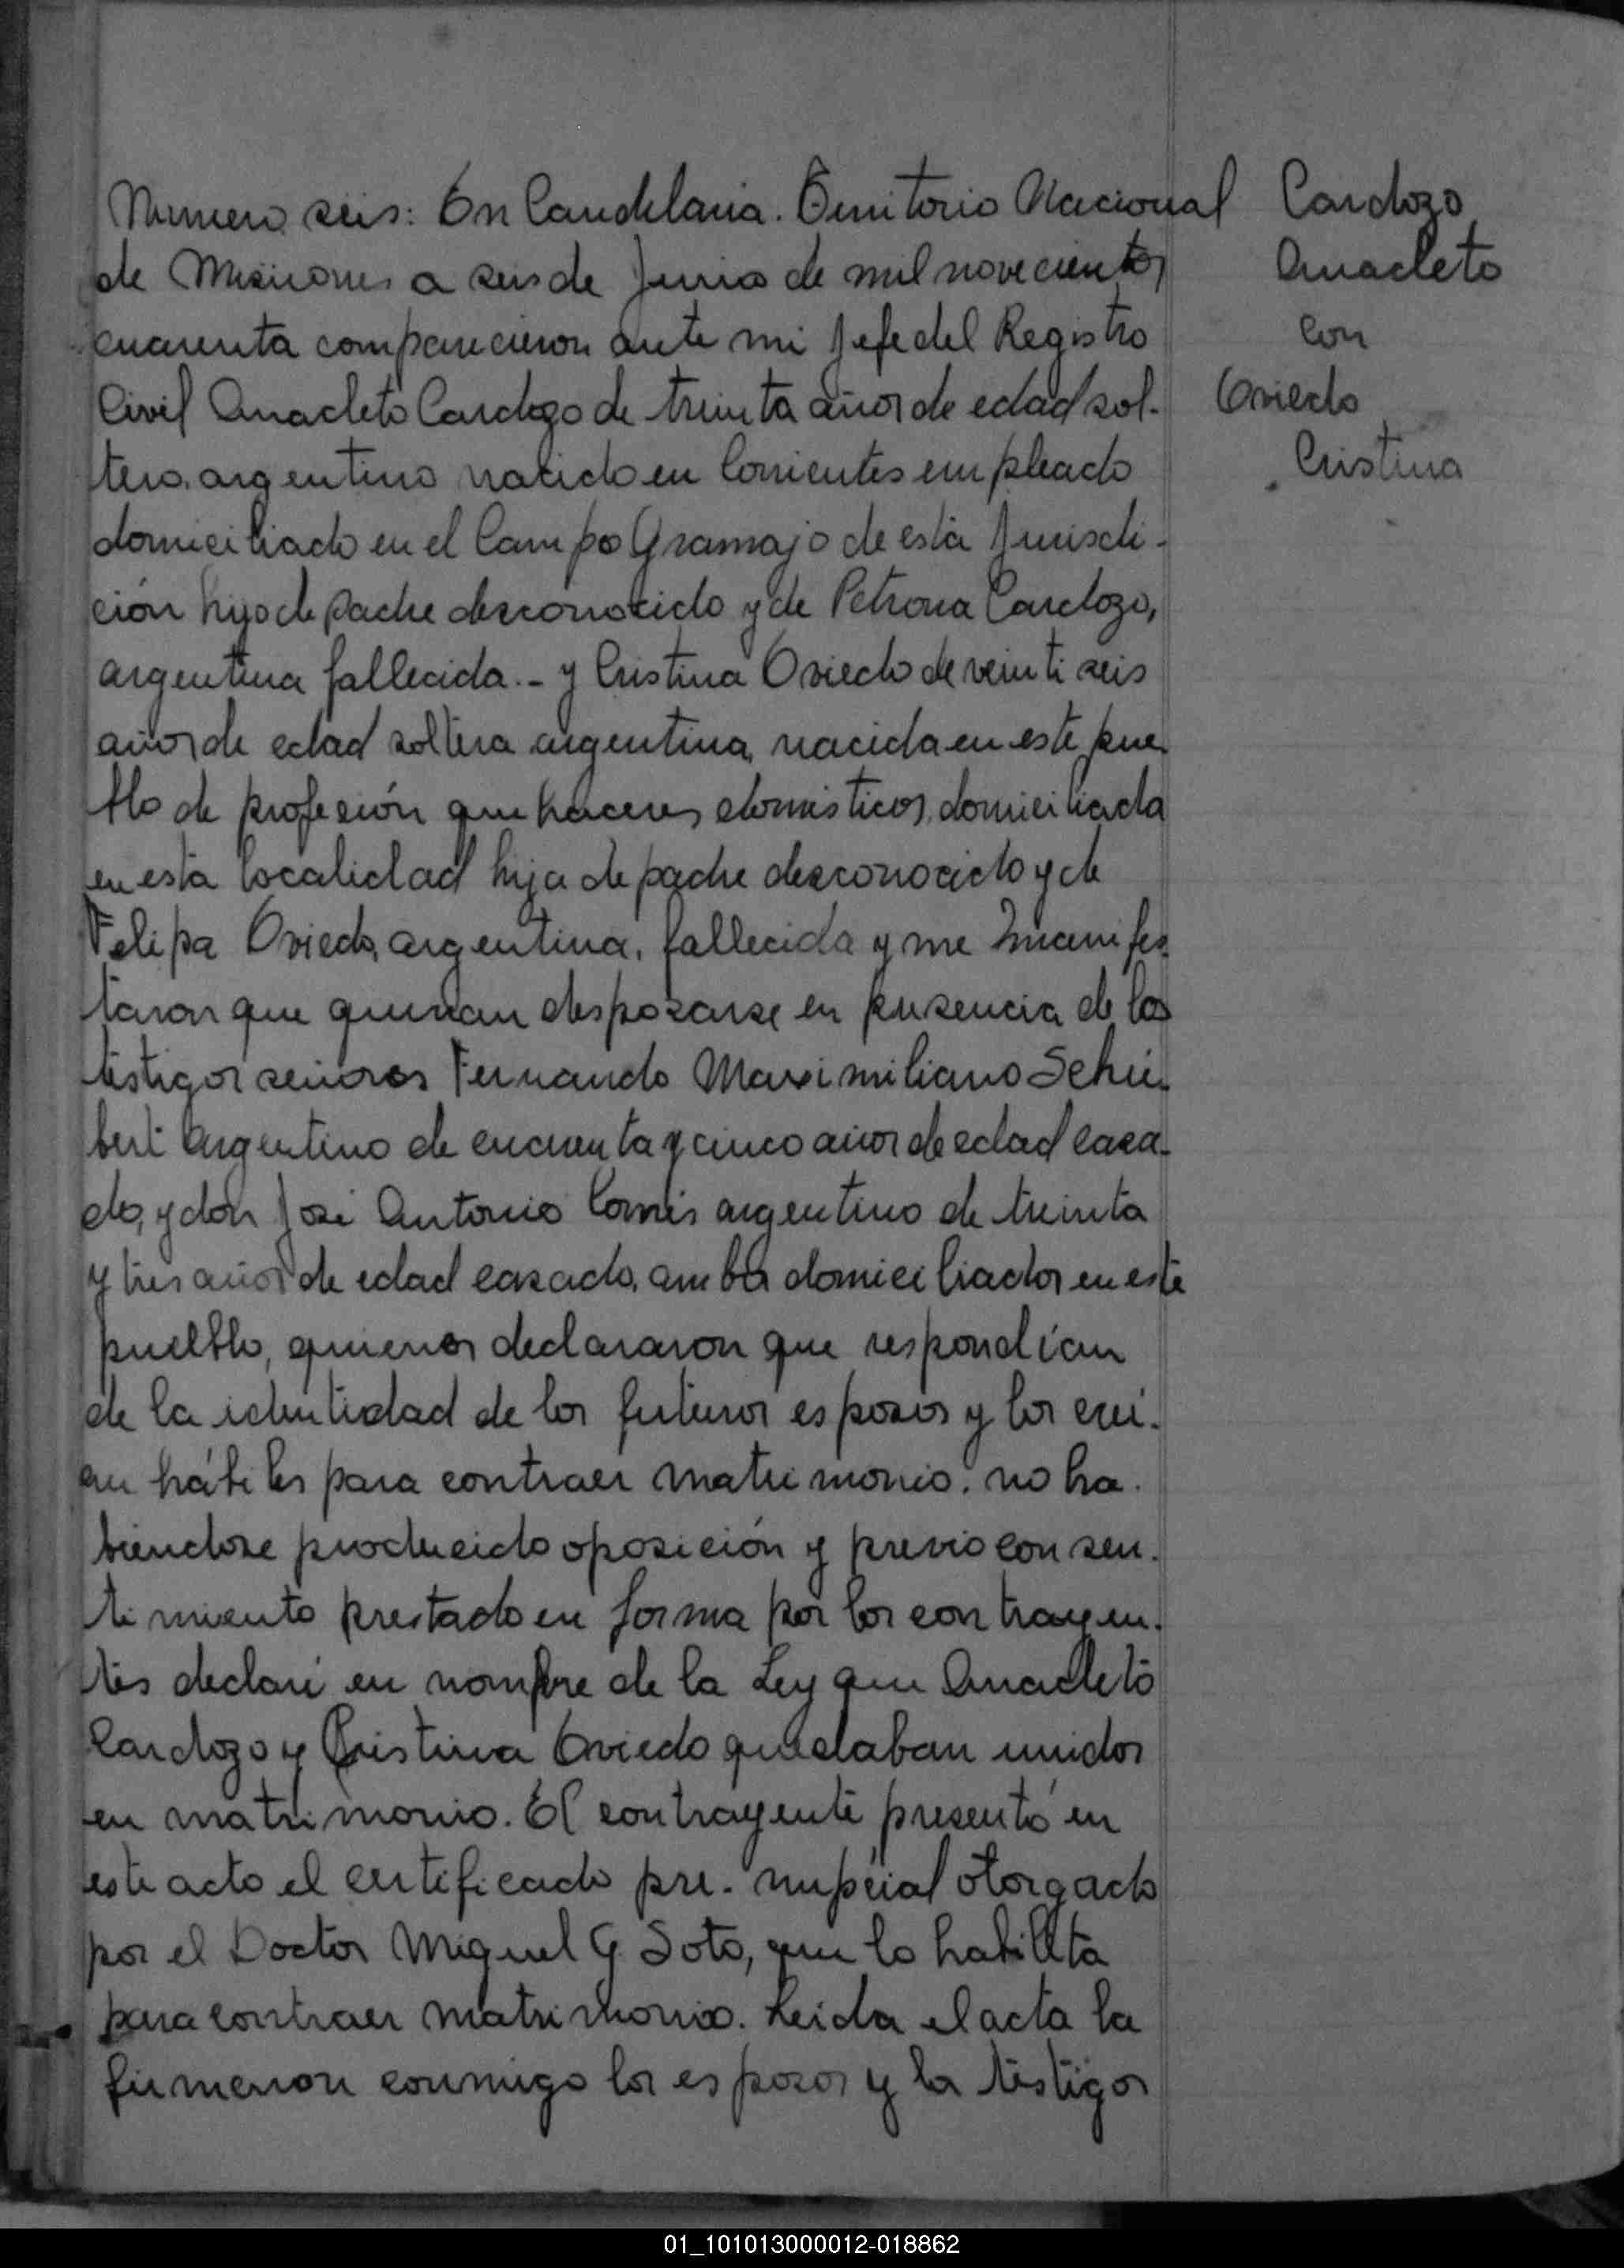 Numero seis: En Candelaria. Territorio Nacional
de Misiones a seis de Junio de mil novecientos
cuarenta comparecieron ante mi Jefe del Registro
Civil Anacleto Cardozo de treinta años de edad sol-
tero, argentino nacido en Corrientes empleado
domiciliado en el Campo Gramajo de esta Jurisdi-
ción hijo de padre desconocido y de Petrona Cardozo,
argentina fallecida.- y Cristina Oviedo de veinti seis
años de edad soltera argentina, nacida en este pue-
blo de profesión quehaceres domesticos, domiciliada
en esta localidad hija de padre desconocido y de
Felipa Oviedo, argentina, fallecida y me manifes-
taron que querian desposarse en presencia de los
testigos señores Fernando Maximiliano Schu-
bert argentino de cuarenta y cinco años de edad casa-
do, y don José Antonio argentino de treinta
y tres años de edad casado, ambos domiciliados en este
pueblo, quienes declararon que respondían
de la identidad de los futuros esposos y los creí-
an hábiles para contraer matrimonio. no ha-
biendose producido oposición y previo consen-
timiento prestado en forma por los contrayen-
tes declaré en nombre de la Ley que Anacleto
Cardozo y Cristina Oviedo quedaban unidos
en matrimonio. El contrayente presentó en
este acto el certificado pre-nupcial otorgado
por el Doctor Miguel G Soto, que lo habilita
para contraer matrimonio. Leida el acta la
firmaron conmigo los esposos y los testigos
Cardozo
Anacleto
con
Oviedo
Cristina
01_101013000012-018862